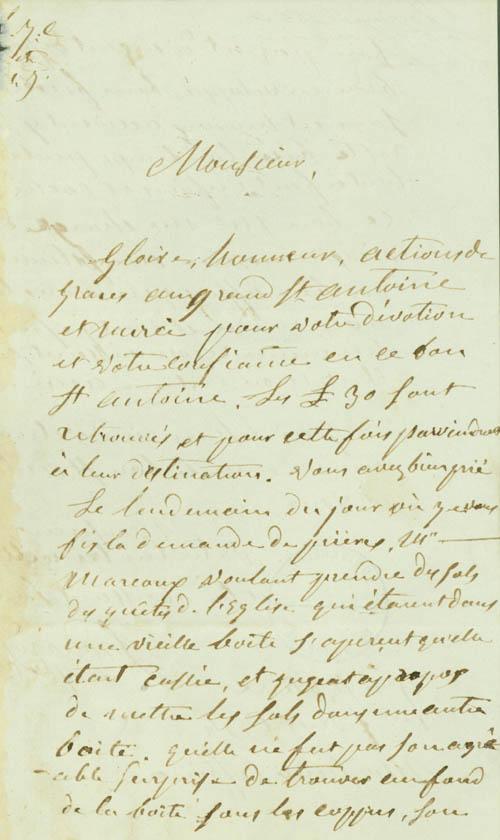 Monsieur,
Gloire, honneur, actions de
graces au grand St antoine
et merci pour votre dévotion
et votre confiance en ce bon
St antoine. Les £ 30 sont
retrouvés et pour cette fois parviendront
à leur destination. Vous avez bien prié
Le lendemain du jour où je vous
fis la demande de prières, Mr
Marcoux voulant prendre des sols
des quêtes de l'Eglise qui étaient dans
une vieille boîte s'aperçut qu'elle
était cassée, et jugeat apropos
de mettre les sols dans une autre
boite. quelle ne fut pas son agré
-able surprise de trouver au fond
de la boîte sous les coppes, son